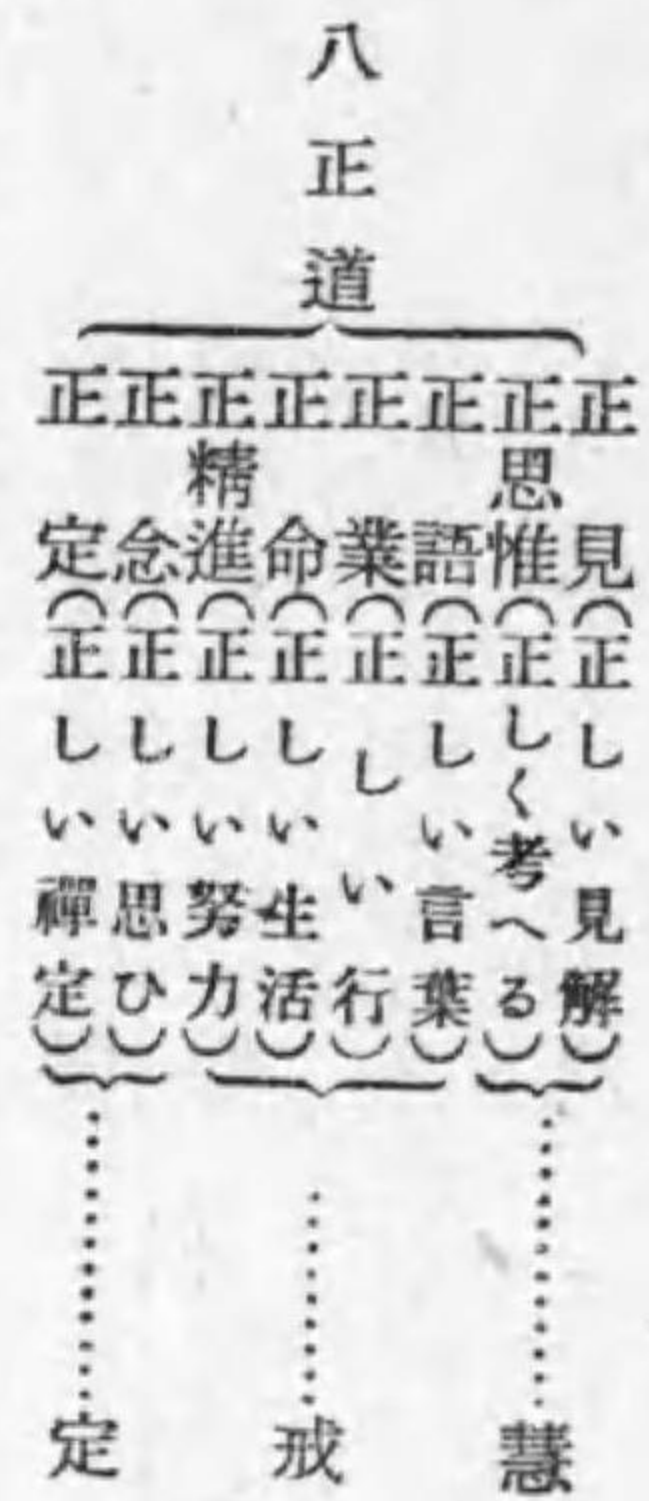 八正道
正見(正しい見解)
正思惟(正しく考へる)
正語(正しい言葉)
正業(正しい行)
正命(正しい生活)
正精進(正しい努力)
正念(正しい思ひ)
正定(正しい禪定)
慧
戒
定